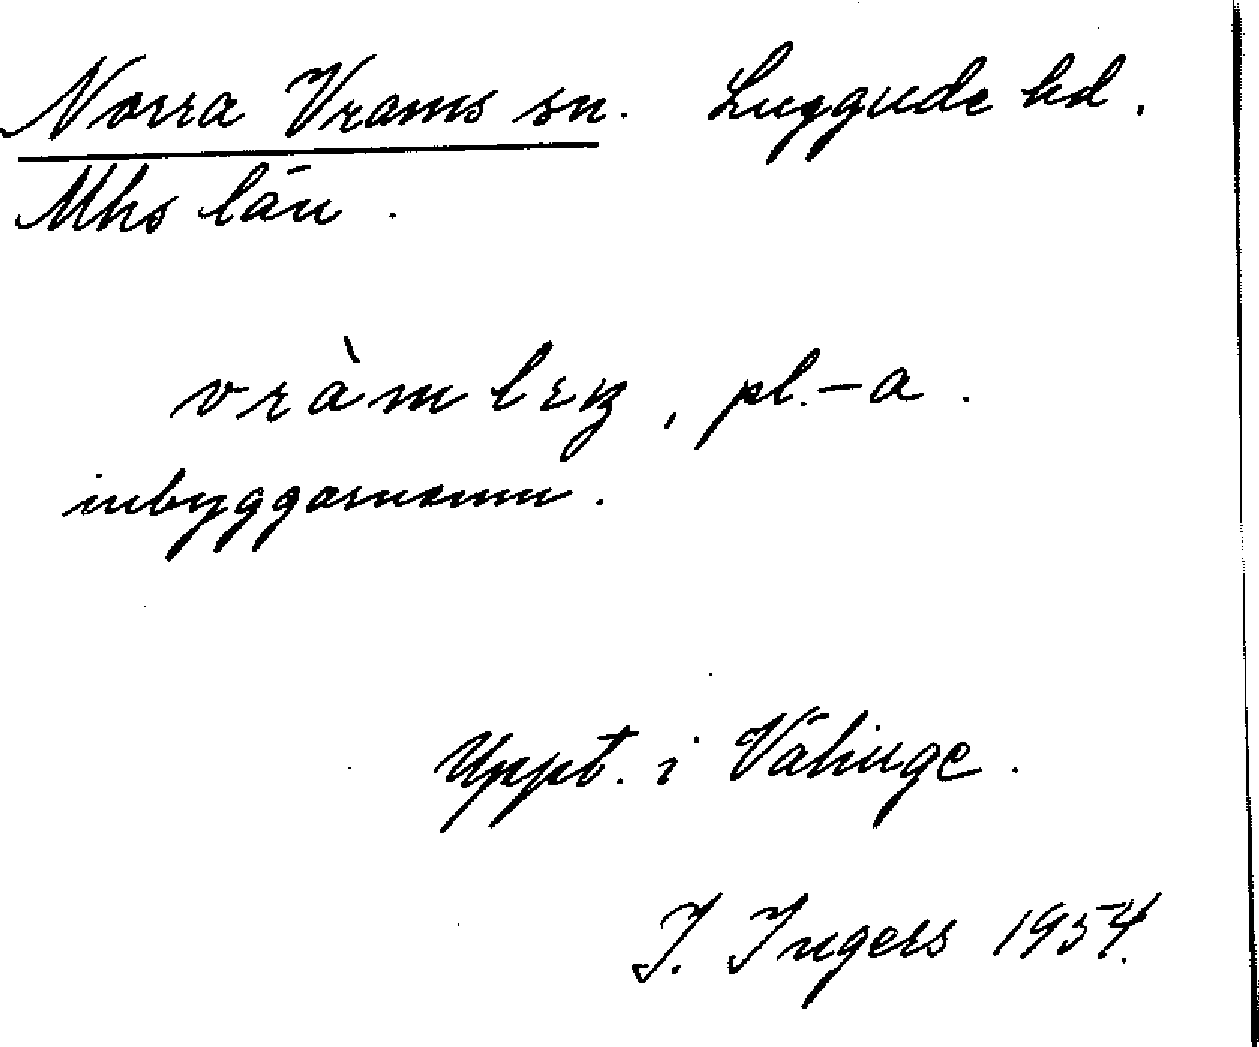 Norra Vrams sn. Luggude hd.
Mhs län.
vràmlɛŋ, pl. -a.
inbyggarnamn.
Uppt. i Vähinge.
I. Ingers 1954.